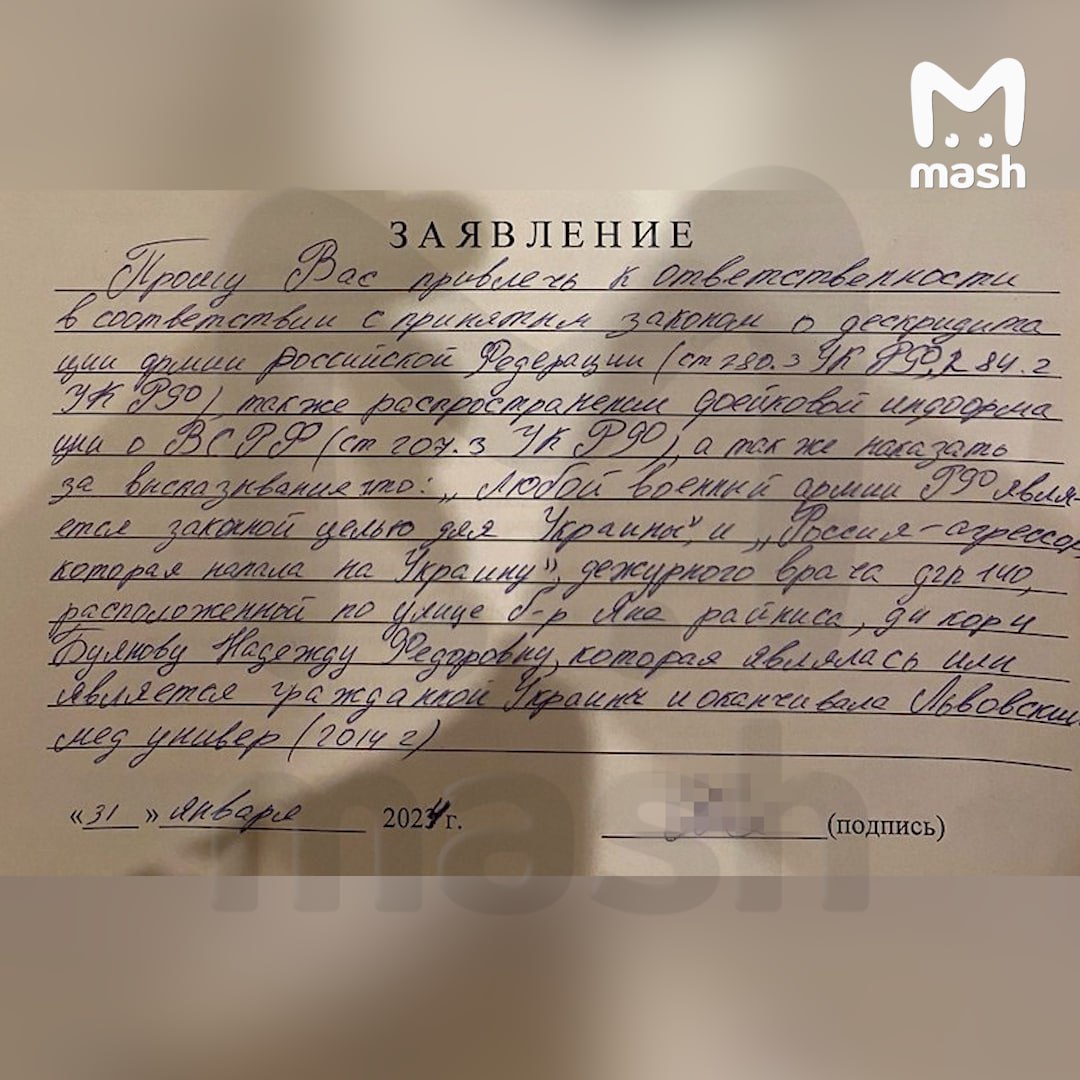 mash
ЗАЯВЛЕНИЕ
Прошу Вас привлечь к ответственности
в соответствии с принятым законом о дескридита
ции армии Российской Федерации (ст 280.3 УК РФ, 284.2
УК РФ), также распространении фейковой информа
ции о ВСРФ (ст 207.3 УК РФ), а так же наказать
за высказывание что: „Любой военный армии РФ явля-
ется законной целью для Украины", и „Россия-агрессор
которая напала на Украину", дежурного врача дгп 140,
расположенной по улице б-р Яна райниса,
Буянову Надежду Федоровну, которая являлась или
является гражданкой Украины и оканчивала Львовский
мед универ (2014 г)
«31» января 2024 г.
(подпись)
mash